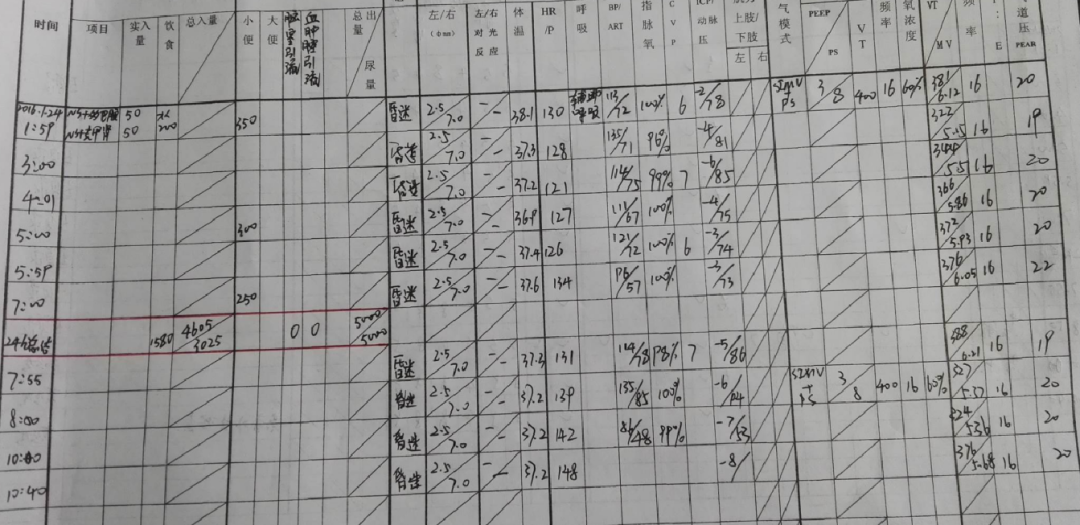 时间 项目 实入量 饮食 总入量 小便 大便 脑室引流 血肿腔引流 总出量 尿量 左/右(Φmm) 左/右对光反应 体温 HR/P 呼吸 BP/ART 指脉氧 CVP ICP/动脉压 上肢/下肢 左 右 气模式 PEEP PS VT 频率 氧浓度 VT MV 频率 : E 道压 PEAR
1:59 50 50 350 昏迷 2.5/7.0 -/- 38.1 130 辅助呼吸 113/72 100% 6 -2/78 SIMV+PS 3/8 400 16 60% 381/6.12 16 20
3:00 昏迷 2.5/7.0 -/- 37.3 128 135/71 96% -4/81 322/5.05 16 19
4:01 昏迷 2.5/7.0 -/- 37.2 121 114/75 99% 7 -6/85 344/5.51 16 20
5:00 300 昏迷 2.5/7.0 -/- 36.9 127 111/67 100% -4/75 366/5.86 16 20
5:59 昏迷 2.5/7.0 -/- 37.4 126 121/72 100% 6 -3/74 372/5.93 16 20
7:00 250 昏迷 2.5/7.0 -/- 37.6 134 96/57 100% -3/73 376/6.05 16 22
24h总结 1580 4605/3025 0 0 5000/5000
7:55 昏迷 2.5/7.0 -/- 37.3 131 98% 7 -5/86 388/6.21 16 19
8:00 昏迷 2.5/7.0 -/- 37.2 139 135/85 100% -6 SIMV+PS 3/8 400 16 60% 327/5.57 16 20
10:00 昏迷 2.5/7.0 -/- 37.2 142 86/48 99% -7/53 324/5.36 16 20
10:40 昏迷 2.5/7.0 -/- 37.2 148 -8/ 376/5.68 16 20